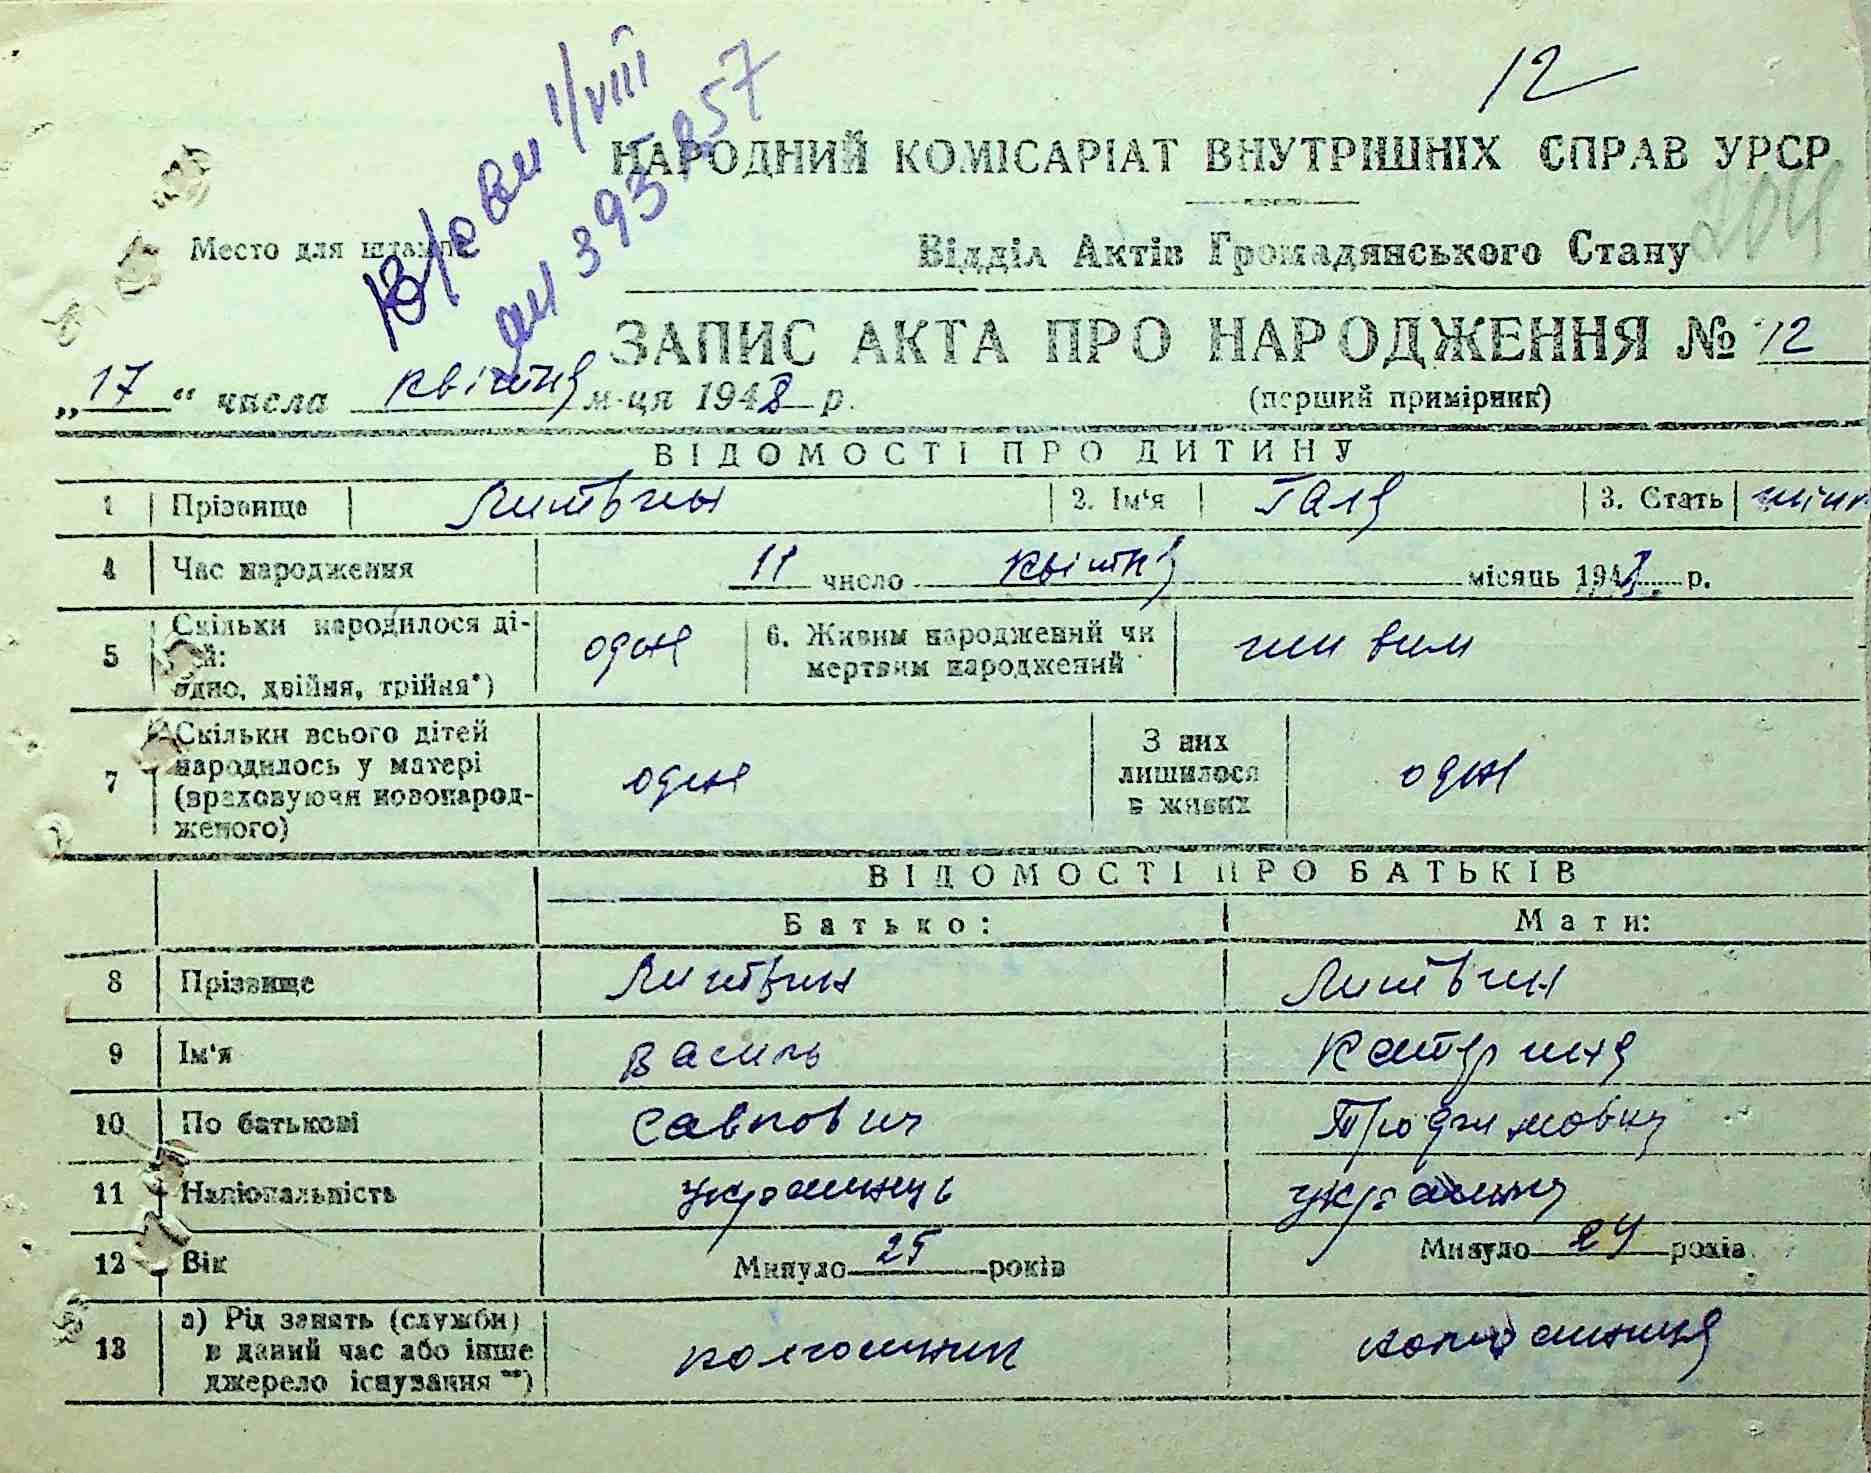 12
І/VIII
395857
НАРОДНИЙ КОМІСАРІАТ ВНУТРІШНІХ СПРАВ УРСР
204
Место для штампа
Відділ Актів Громадянського Стану
ЗАПИС АКТА ПРО НАРОДЖЕННЯ № 12
„17“ числа квітня м-ця 1948 р.
(перший примірник)
ВІДОМОСТІ ПРО ДИТИНУ
1 Прізвище Литвин 2. Ім'я Галя 3. Стать жін
4 Час народження 11 число квітня місяць 1948 р.
5 Скільки народилося ді-
тей:
одно, двійня, трійня*) одне 6. Живим народжений чи
мертвим народжений живим
7 Скільки всього дітей
народилось у матері
(враховуючи новонарод-
женого) одне З них
лишилося
в живих одне
ВІДОМОСТІ ПРО БАТЬКІВ
Батько: Мати:
8 Прізвище Литвин Литвин
9 Ім'я Василь Катерина
10 По батькові Савкович Трофимовна
11 Національність українець українка
12 Вік Минуло 25 років Минуло 24 років
13 а) Рід занять (служби)
в даний час або інше
джерело існування **) колгоспник колгоспниця